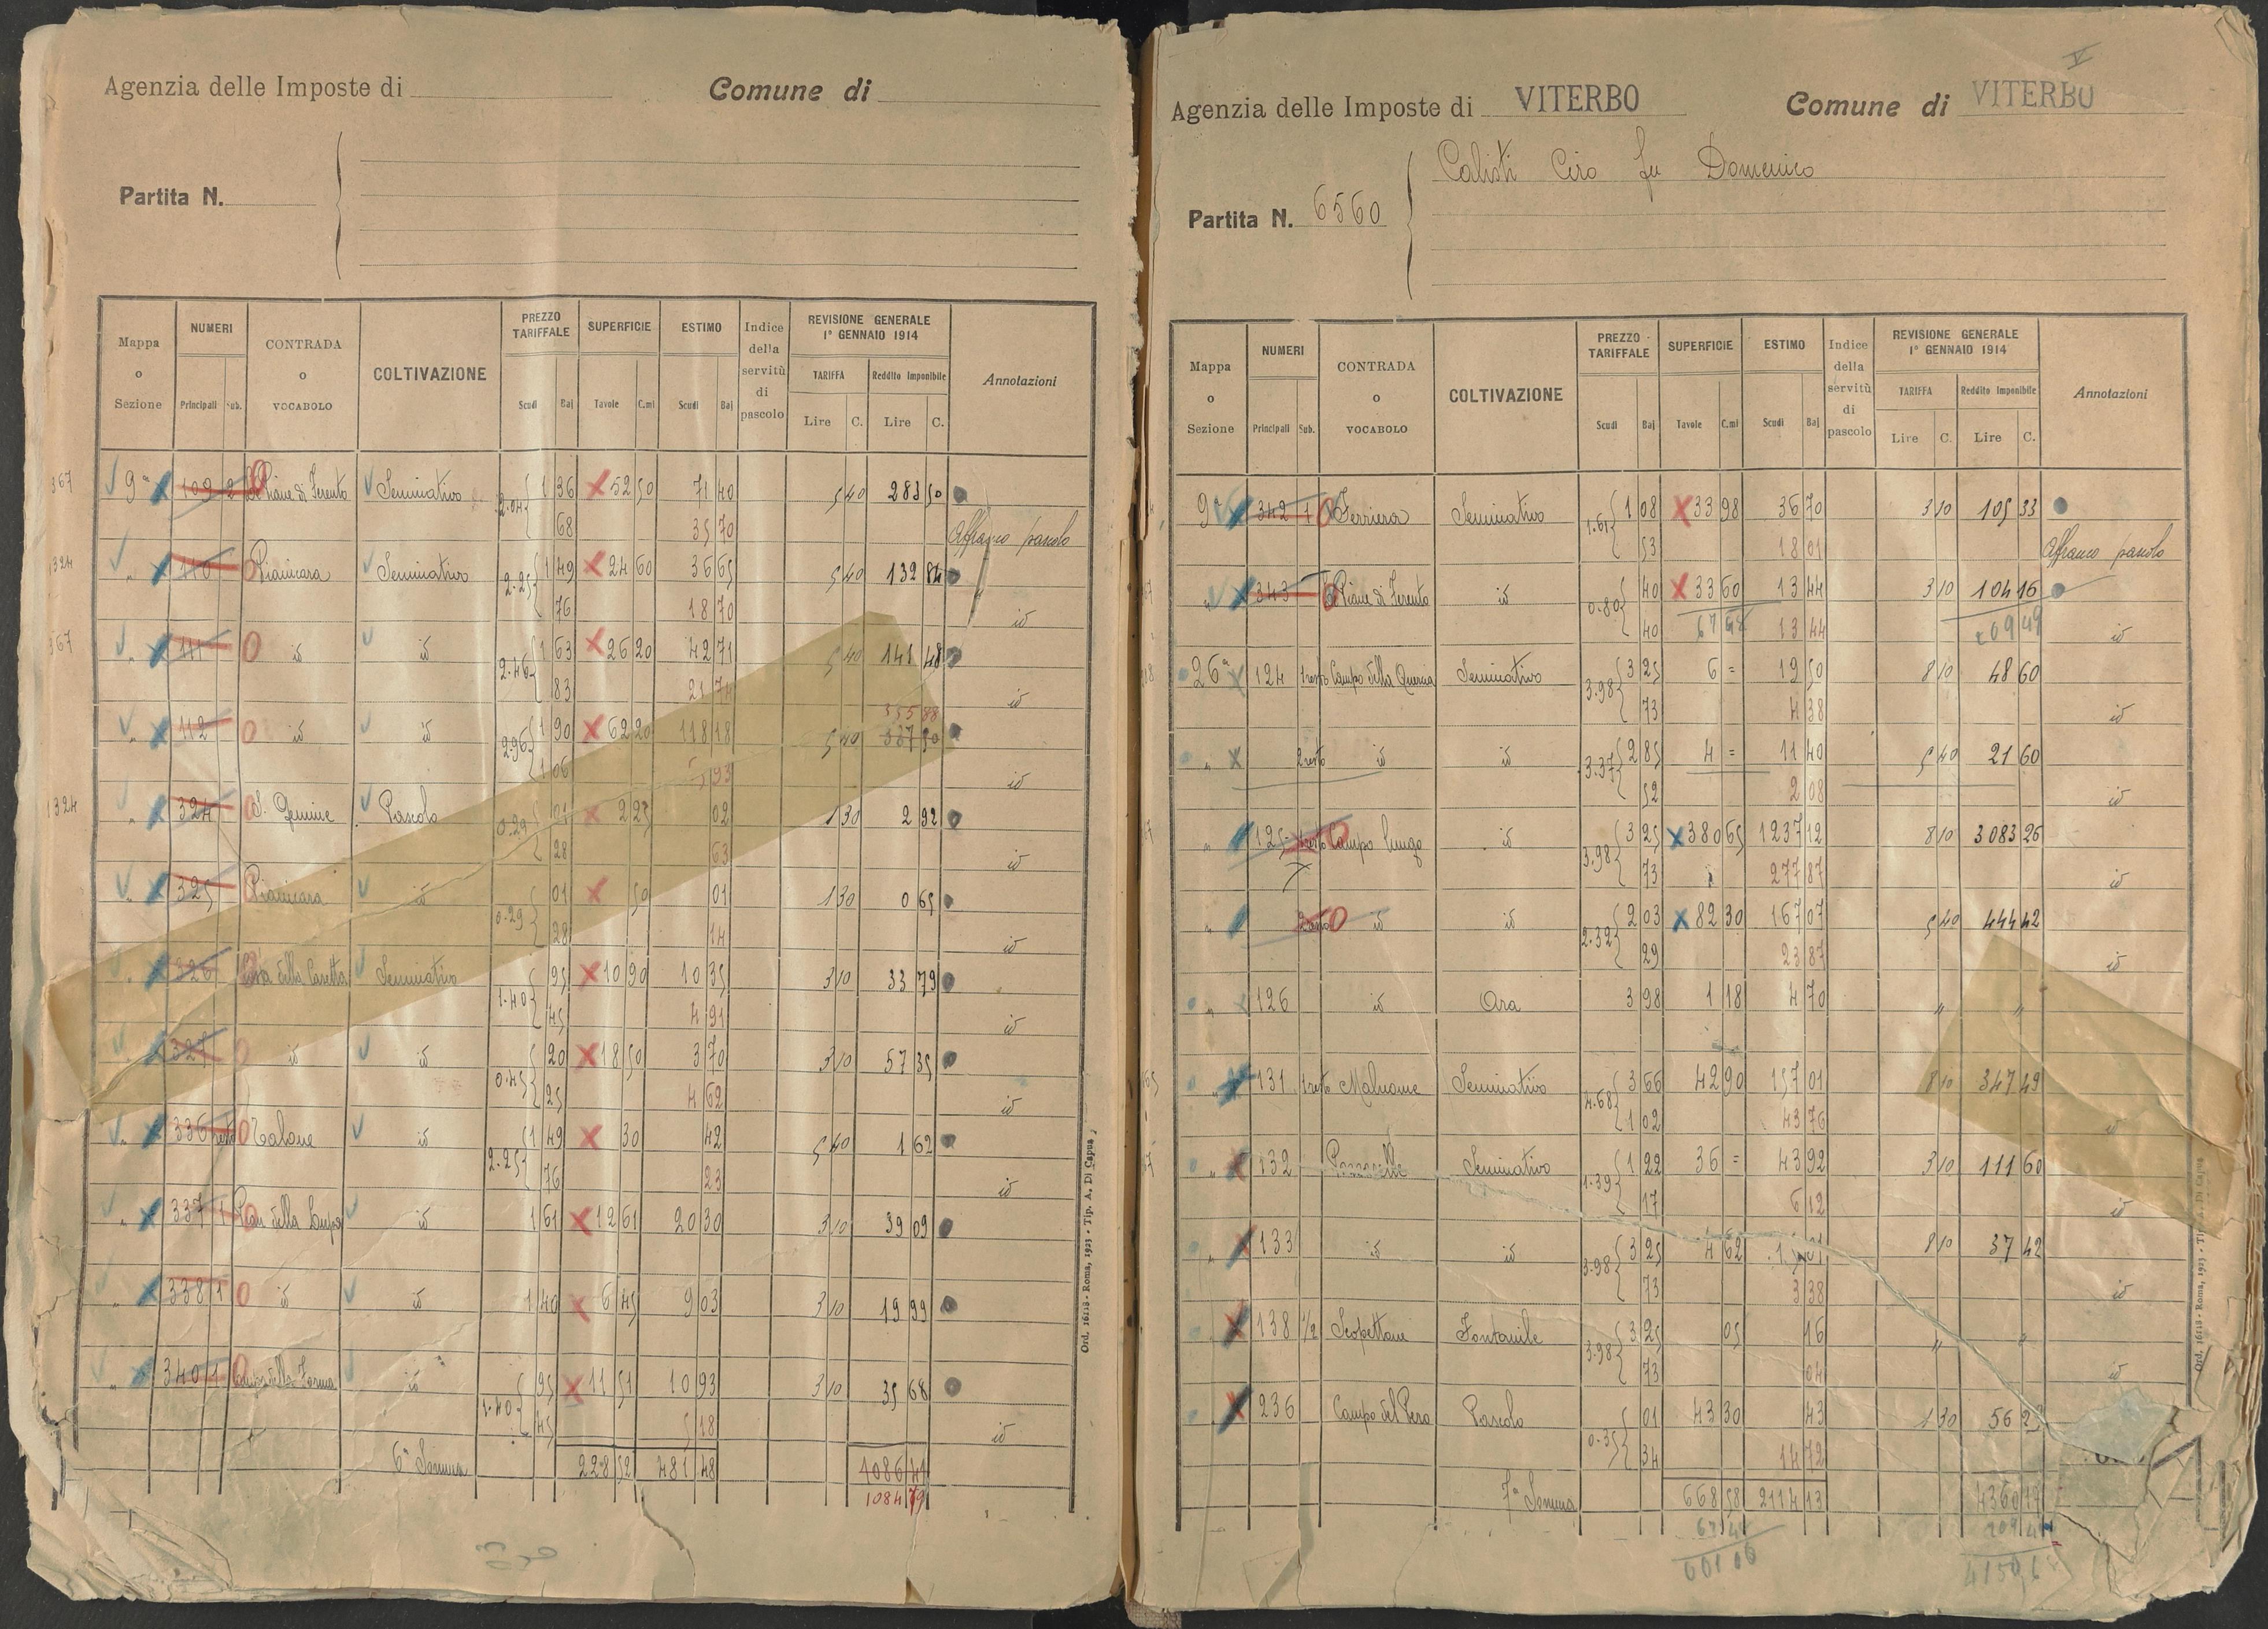 Agenzia delle Imposte di
Comune di
Partita N.
Mappa o Sezione
NUMERI
Principali Sub.
CONTRADA o VOCABOLO
COLTIVAZIONE
PREZZO TARIFFALE
Scudi Baj
SUPERFICIE
Tavole C.mi
ESTIMO
Scudi Baj
Indice della servitù di pascolo
REVISIONE GENERALE 1° GENNAIO 1914
TARIFFA Reddito Imponibile
Lire C. Lire C.
Annotazioni
367 9ª 109 2 Piane di Ferento Seminativo 2.04 1 36 52 50 71 40 5 40 283 50
68 35 70 Affranco pascolo
1324 " 110 Pianicara Seminativo 2.25 1 49 24 60 36 65 5 40 132 84
76 18 70 id
367 " 111 id id 2.46 1 63 26 20 42 71 5 40 141 48
83 21 74 id
335 88
" 112 id id 2.96 1 90 62 20 118 18 5 40
1 06 93 id
1324 " 324 S. Gemine Pascolo 0.29 01 2 25 02 1 30 2 92
28 63 id
" 325 Pianicara id 0.29 01 50 01 1 30 0 65
28 14 id
" 326 della Casetta Seminativo 1.40 95 10 90 10 35 3 10 33 79
45 4 91 id
" 327 id id 0.45 20 18 50 3 70 3 10 57 35
25 4 62 id
" 336 resto Talone id 2.25 1 49 30 42 5 40 1 62
76 23 id
" 337 1 Pian della Lupa id 1 61 12 61 20 30 3 10 39 09
" 338 1 id id 1 40 6 45 9 03 3 10 19 99
" 340 1 della Forma id 1.40 95 11 51 10 93 3 10 35 68
45 5 18 id
6ª Somma 228 52 481 48 1086 41
1084 79
Ord. 16118 - Roma, 1923 - Tip. A. Di Capua
V
Agenzia delle Imposte di VITERBO
Comune di VITERBO
Calisti Ciro fu Domenico
Partita N. 6560
Mappa o Sezione
NUMERI
Principali Sub.
CONTRADA o VOCABOLO
COLTIVAZIONE
PREZZO TARIFFALE
Scudi Baj
SUPERFICIE
Tavole C.mi
ESTIMO
Scudi Baj
Indice della servitù di pascolo
REVISIONE GENERALE 1° GENNAIO 1914
TARIFFA Reddito Imponibile
Lire C. Lire C.
Annotazioni
9ª 342 1 Ferriera Seminativo 1.61 1 08 33 98 36 70 3 10 105 33
53 18 01 Affranco pascolo
" 343 Piane di Ferento id 0.80 40 33 60 13 44 3 10 104 16
40 13 44 209 49 id
26ª 124 1 resto Campo della Quercia Seminativo 3.98 3 25 6 = 19 50 8 10 48 60
73 4 38 id
" 2 resto id id 3.37 2 85 4 = 11 40 5 40 21 60
52 2 08 id
" 125 1 resto Campo lungo id 3.98 3 25 380 65 1237 12 8 10 3083 26
73 277 87 id
" 2 resto id id 2.32 2 03 82 30 167 07 5 40 444 42
29 23 87 id
" 126 id Ara 3 98 1 18 4 70 " "
" 131 1 resto Malnome Seminativo 4.68 3 66 42 90 157 01 8 10 347 49
1 02 43 76 id
" 132 Seminativo 1.39 1 22 36 = 43 92 3 10 111 60
17 6 12 id
" 133 id id 3.98 3 25 4 62 8 10 37 42
73 3 38 id
" 138 1/2 Scopettone Fontanile 3.98 3 25 05 16 " "
73 04 id
" 236 Campo del Pero Pascolo 0.35 01 43 30 43 1 30 56
34 14 72
7ª Somma 668 58 2114 13
601 06
Ord. 16118 - Roma, 1923 - Tip. A. Di Capua